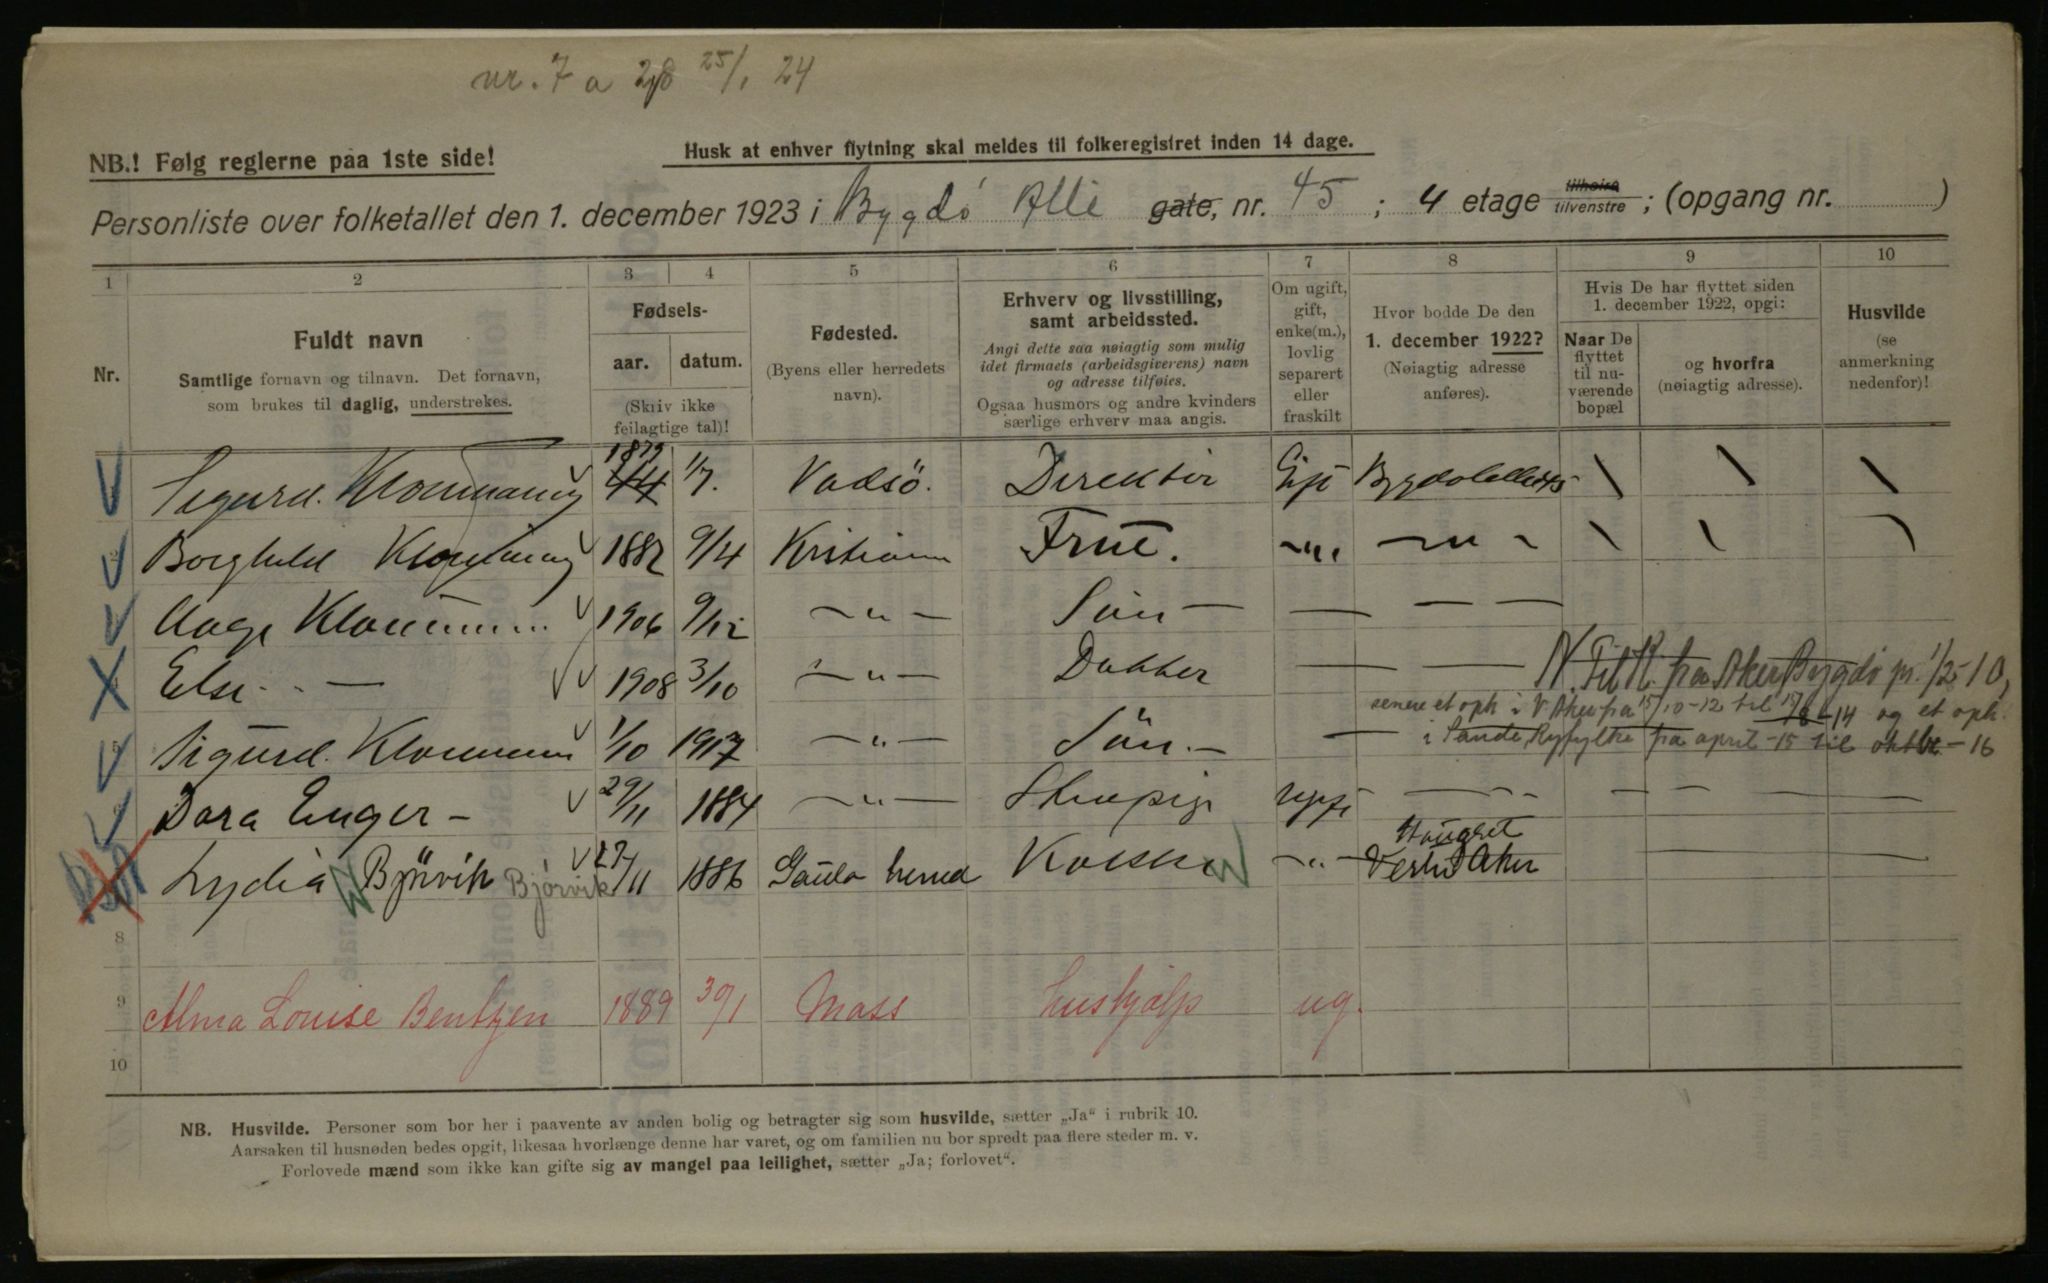 nr. 7 a 25/1 24
NB.! Følg reglerne paa 1ste side!
Husk at enhver flytning skal meldes til folkeregistret inden 14 dage.
Personliste over folketallet den 1. december 1923 i Bygdö Alle gate, nr. 45 ; 4 etage tilhøire tilvenstre ; (opgang nr. )
1 2 3 4 5 6 7 8 9 10
Nr.
Fuldt navn
Samtlige fornavn og tilnavn. Det fornavn,
som brukes til daglig, understrekes.
Fødsels-
aar. datum.
(Skriv ikke
feilagtige tal)!
Fødested.
(Byens eller herredets
navn).
Erhverv og livsstilling,
samt arbeidssted.
Angi dette saa nøiagtig som mulig
idet firmaets (arbeidsgiverens) navn
og adresse tilføies.
Ogsaa husmors og andre kvinders
særlige erhverv maa angis.
Om ugift,
gift,
enke(m.),
lovlig
separert
eller
fraskilt
Hvor bodde De den
1. december 1922?
(Nøiagtig adresse
anføres).
Hvis De har flyttet siden
1. december 1922, opgi:
Naar De
flyttet
til nu-
værende
bopæl
og hvorfra
(nøiagtig adresse).
Husvilde
(se
anmerkning
nedenfor)!
Sigurd. Kloumann 1879 44 1/7. Vadsö. Direktör Gift
Borghild 1882 9/4 Kristiania Frue. -"- - " -
Aage 1906 9/12 - " - Sön -
Else - 1908 3/10 - " - Datter
N. Til K. fra Aker Bygdö pr. 1/2-10,
senere et oph i V Aker fra 15/10-12 til 14 og et oph.
i Sande, Ryfylke fra april -15 til oktbr -16
Sigurd. Kloumann 1/10 1917 - " - Sön. -
Dora Enger - 29/11 1884 - " - ugift
Lydia Björvik Bjørvik 27/11 1886 Gaula herred Kokke - " - Vestre Aker
8
9 Alma Louise Bentzen 1889 30/1 Moss hushjælp ug.
10
NB. Husvilde. Personer som bor her i paavente av anden bolig og betragter sig som husvilde, sætter „Ja“ i rubrik 10.
Aarsaken til husnøden bedes opgit, likesaa hvorlænge denne har varet, og om familien nu bor spredt paa flere steder m. v.
Forlovede mænd som ikke kan gifte sig av mangel paa leilighet, sætter „Ja; forlovet“.